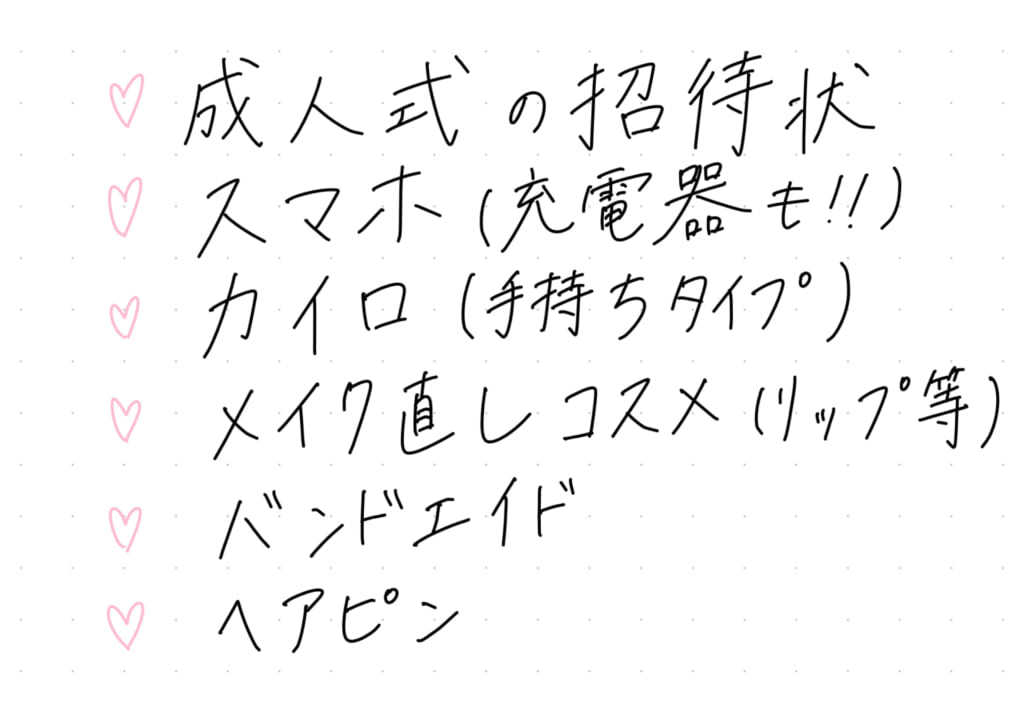 ♡ 成人式の招待状
♡ スマホ(充電器も!!)
♡ カイロ(手持ちタイプ)
♡ メイク直しコスメ(リップ等)
♡ バンドエイド
♡ ヘアピン